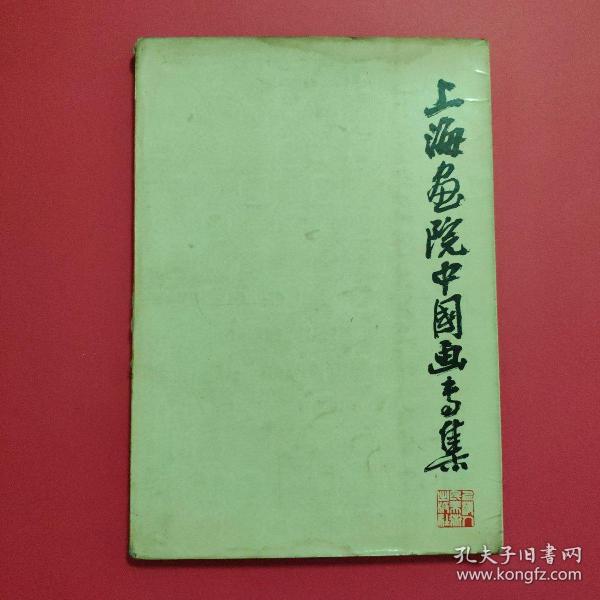 上海画院中国画专集
孔夫子旧书网
www.kongfz.com